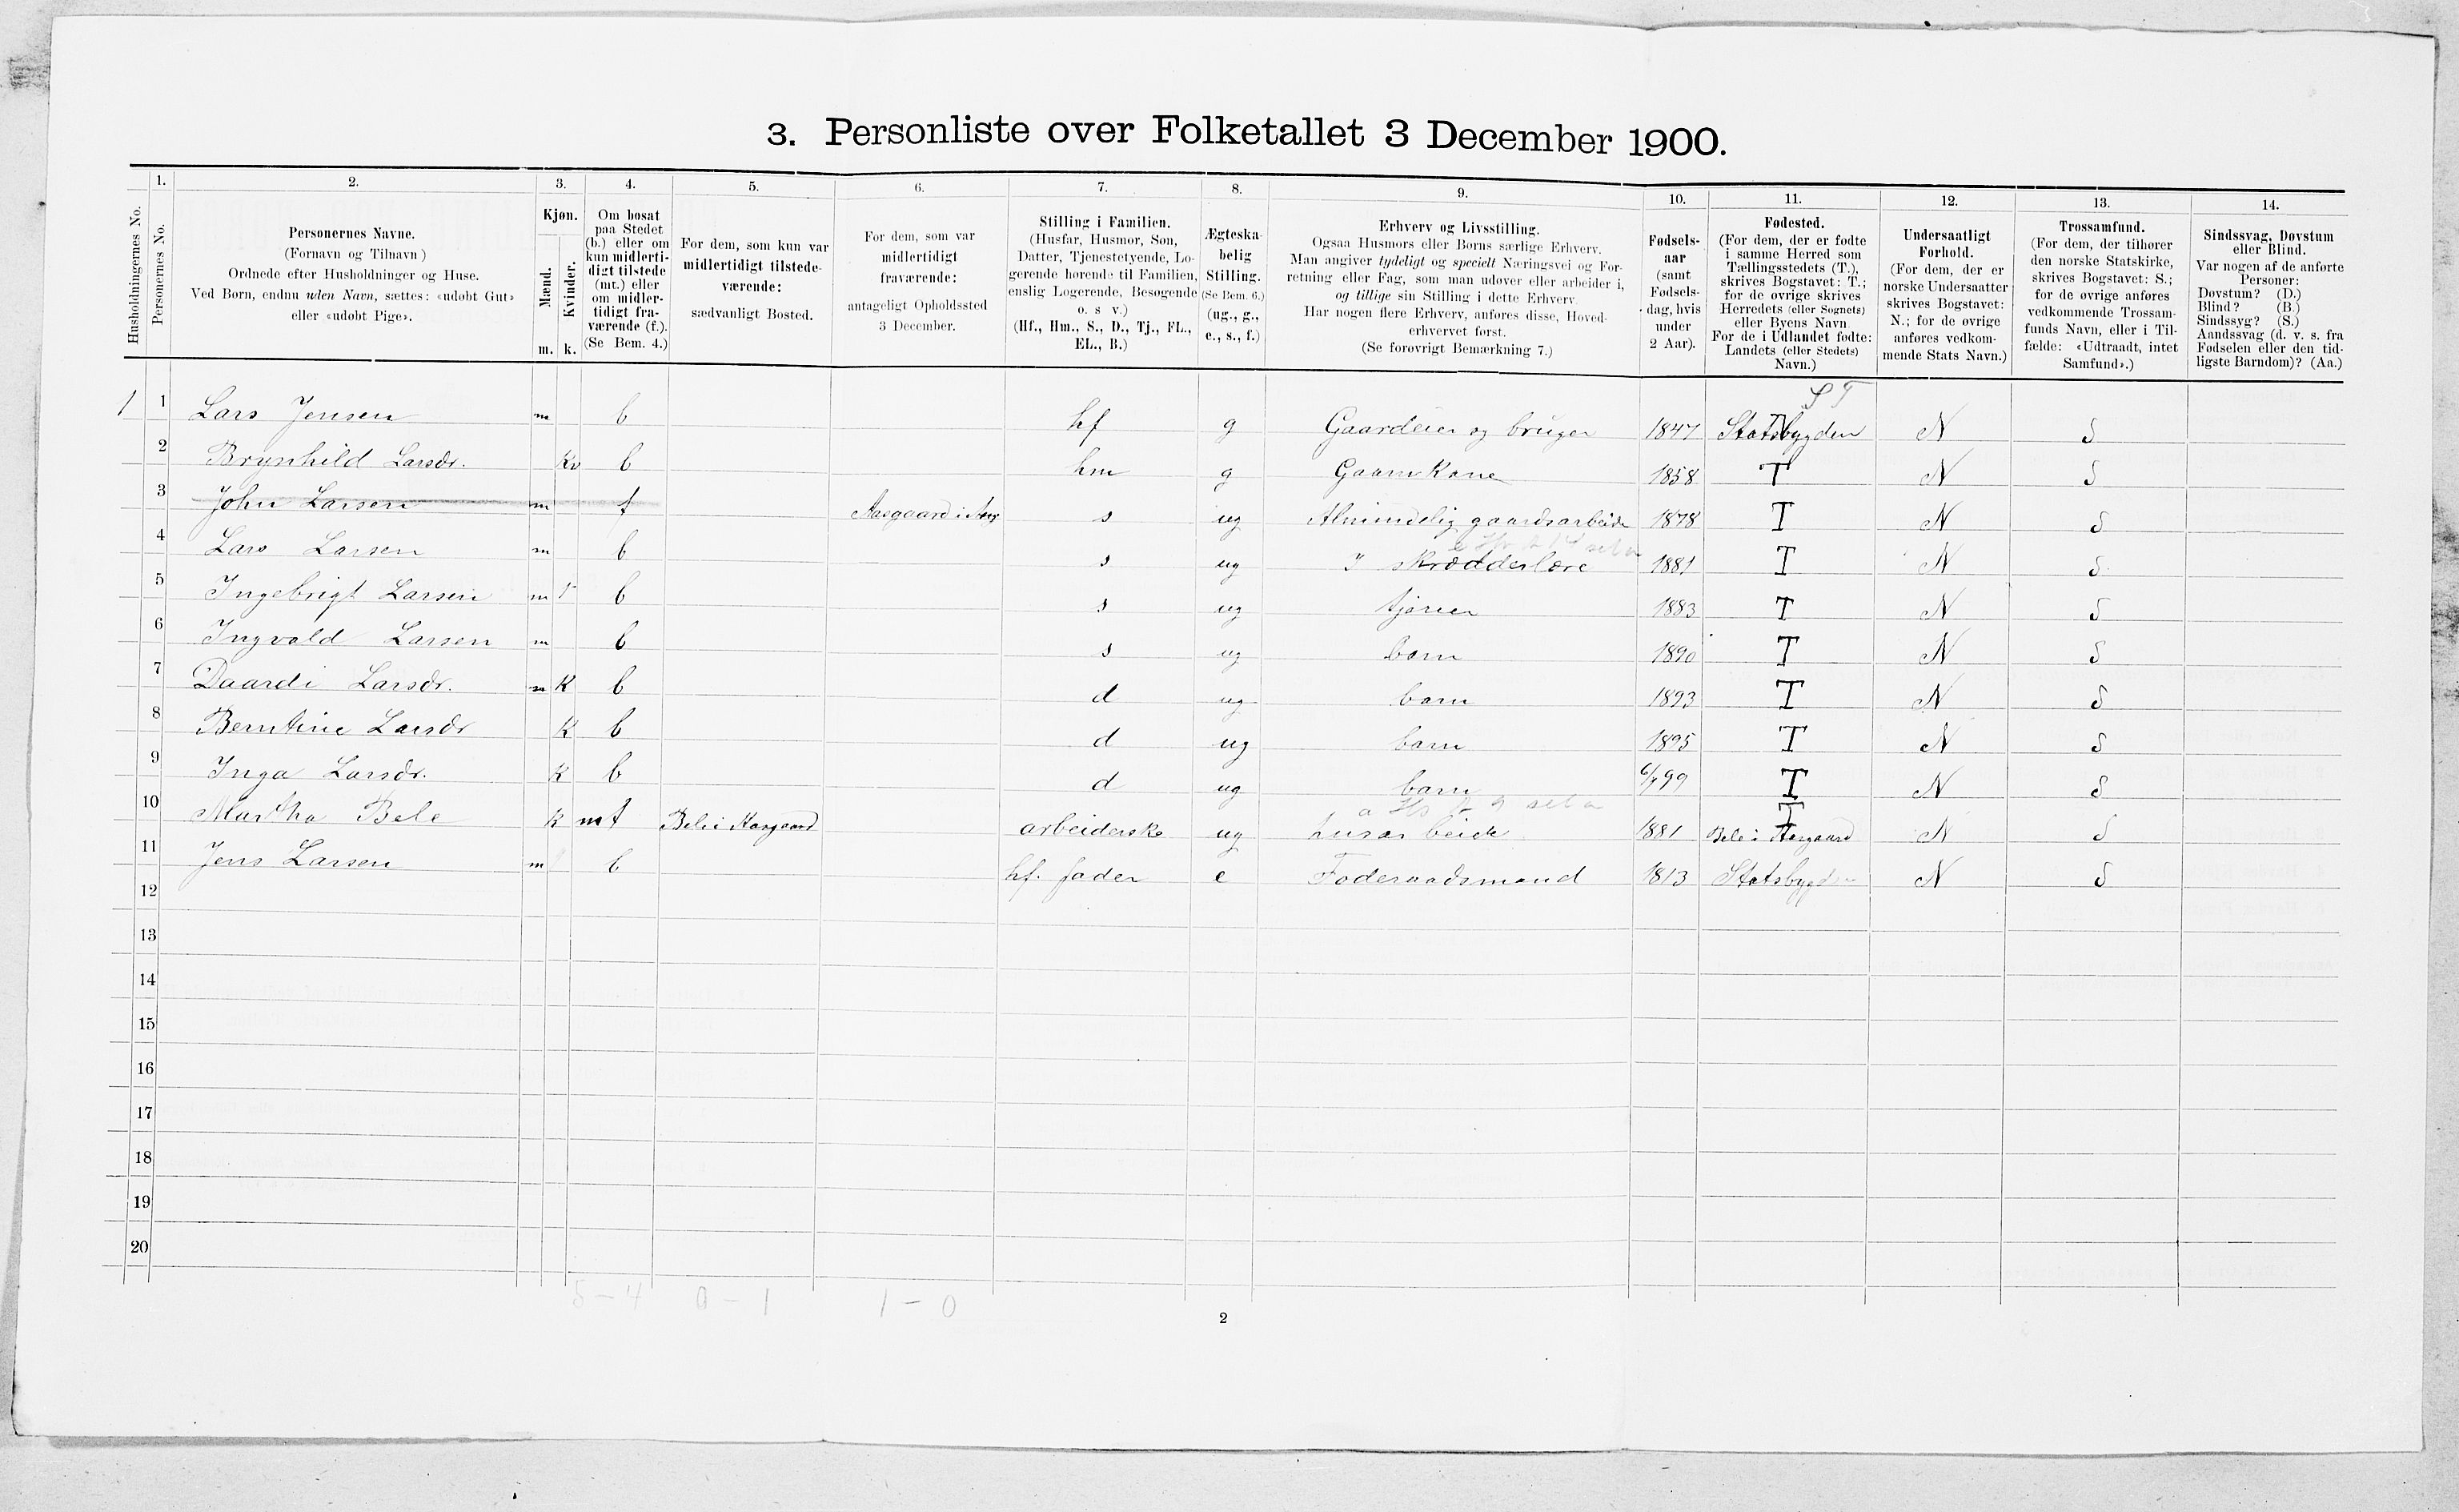 3. Personliste over Folketallet 3 December 1900.
1. 2. 3. 4. 5. 6. 7. 8. 9. 10. 11. 12. 13. 14.
Husholdningernes No.
Personernes No.
Personernes Navne.
(Fornavn og Tilnavn)
Ordnede efter Husholdninger og Huse.
Ved Børn, endnu uden Navn, sættes: «udøbt Gut»
eller «udøbt Pige».
Kjøn.
Mænd.
Kvinder.
m. k.
Om bosat
paa Stedet
(b.) eller om
kun midlerti-
digt tilstede
(mt.) eller
om midler-
tidigt fra-
værende (f.).
(Se Bem. 4.)
For dem, som kun var
midlertidigt tilstede-
værende:
sædvanligt Bosted.
For dem, som var
midlertidigt
fraværende:
antageligt Opholdssted
3 December.
Stilling i Familien.
(Husfar, Husmor, Søn,
Datter, Tjenestetyende, Lo-
gerende hørende til Familien,
enslig Logerende, Besøgende
o. s. v.)
(Hf., Hm., S., D., Tj., FL.,
EL., B.)
Ægteska-
belig
Stilling.
(Se Bem. 6.)
(ug., g.,
e., s., f.)
Erhverv og Livsstilling.
Ogsaa Husmors eller Børns særlige Erhverv.
Man angiver tydeligt og specielt Næringsvei og For-
retning eller Fag, som man udøver eller arbeider i,
og tillige sin Stilling i dette Erhverv.
Har nogen flere Erhverv, anføres disse, Hoved-
erhvervet først.
(Se forøvrigt Bemærkning 7.)
Fødsels-
aar
(samt
Fødsels-
dag, hvis
under
2 Aar).
Fødested.
(For dem, der er fødte
i samme Herred som
Tællingsstedets (T.),
skrives Bogstavet: T.;
for de øvrige skrives
Herredets (eller Sognets)
eller Byens Navn.
For de i Udlandet fødte:
Landets (eller Stedets)
Navn.)
Undersaatligt
Forhold.
(For dem, der er
norske Undersaatter
skrives Bogstavet:
N.; for de øvrige
anføres vedkom-
mende Stats Navn.)
Trossamfund.
(For dem, der tilhører
den norske Statskirke,
skrives Bogstavet: S.;
for de øvrige anføres
vedkommende Trossam-
funds Navn, eller i Til-
fælde: «Udtraadt, intet
Samfund».)
Sindssvag, Døvstum
eller Blind.
Var nogen af de anførte
Personer:
Døvstum? (D.)
Blind? (B.)
Sindssyg? (S.)
Aandssvag (d. v. s. fra
Fødselen eller den tid-
ligste Barndom)? (Aa.)
S T
1 1 Lars Jensen m b hf g Gaardeier og bruger 1847 Statsbygden N S
2 Brynhild Larsdr. Kv b hm g Gaarmkone 1858 T N S
3 John Larsen m f Aasgaard i s ug Almindelig gaardsarbeide 1878 T N S
4 Lars Larsen m b s ug I skrædderlære 1881 T N S
5 Ingebrigt Larsen m b s ug tjener 1883 T N S
6 Ingvald Larsen m b s ug barn 1890 T N S
7 Daardi Larsdr. m K b d ug barn 1893 T N S
8 Berntine Larsdr K b d ug barn 1895 T N S
9 Inga Larsdr. K b d ug barn 6/7 99 T N S
10 Martha Bele K mt Bele i Aasgaard arbeiderske ug husarbeide 1881 T Bele i Aasgaard N S
11 Jens Larsen m b hf. fader e Føderaadsmand 1813 Statsbygden N S
12
13
14
15
16
17
18
19
20
5 - 4 0 - 1 1 - 0
2